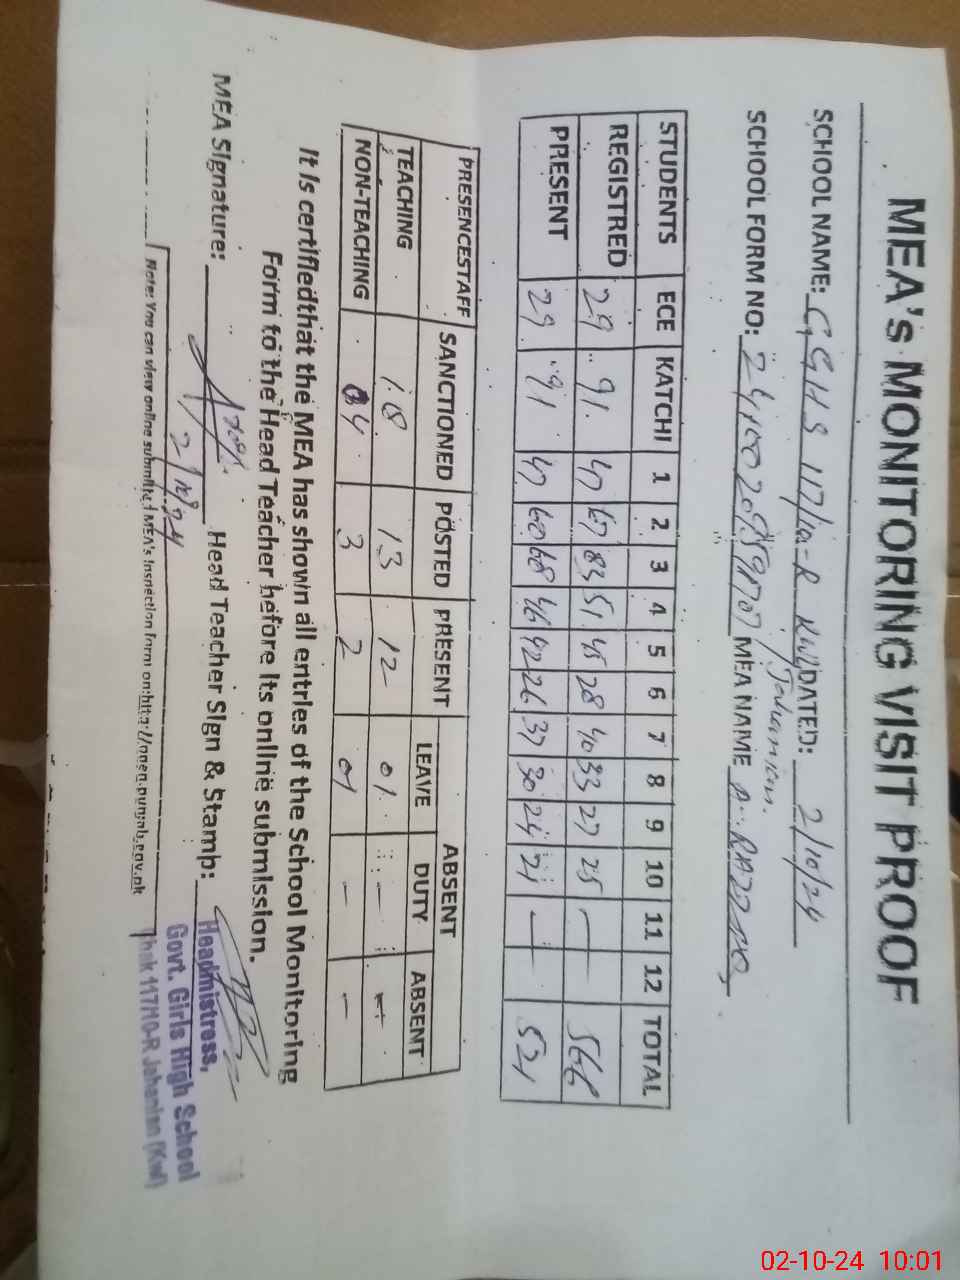 MEA's MONITORING VISIT PROOF
SCHOOL NAME: GGHS 117/10-R KWL DATED: 2/10/24
Jahanian.
SCHOOL FORM NO: MEA NAME
STUDENTS ECE KATCHI 1 2 3 4 5 6 7 8 9 10 11 12 TOTAL
REGISTRED 29 91 47 67 83 51 45 28 40 33 27 25 — — 566
PRESENT 29 91 47 60 68 46 42 26 37 30 24 21 — — 521
PRESENCESTAFF SANCTIONED POSTED PRESENT ABSENT
LEAVE DUTY ABSENT
TEACHING 18 13 12 01 — —
NON-TEACHING 04 3 2 01 — —
It is certifiedthat the MEA has shown all entries of the School Monitoring
Form to the Head Teacher before its online submission.
MEA Signature: Head Teacher Sign & Stamp:
2/10/24
Headmistress,
Govt. Girls High School
Chak 117/10-R Jahanian (Kwl)
Note: You can view online submitted MEA's Inspection form on:http://open.punjab.gov.pk
02-10-24 10:01